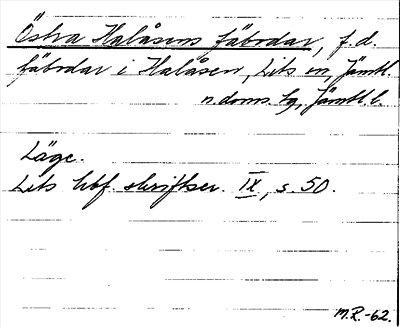 Östra Halåsens fäbodar, f.d.
fäbodar i Halåsen, Lits sn, Jämtl.
n. doms. tg, Jämtl. l.
Läge.
Lits hbf. skriftser. IX, s. 50.
M.R.-62.